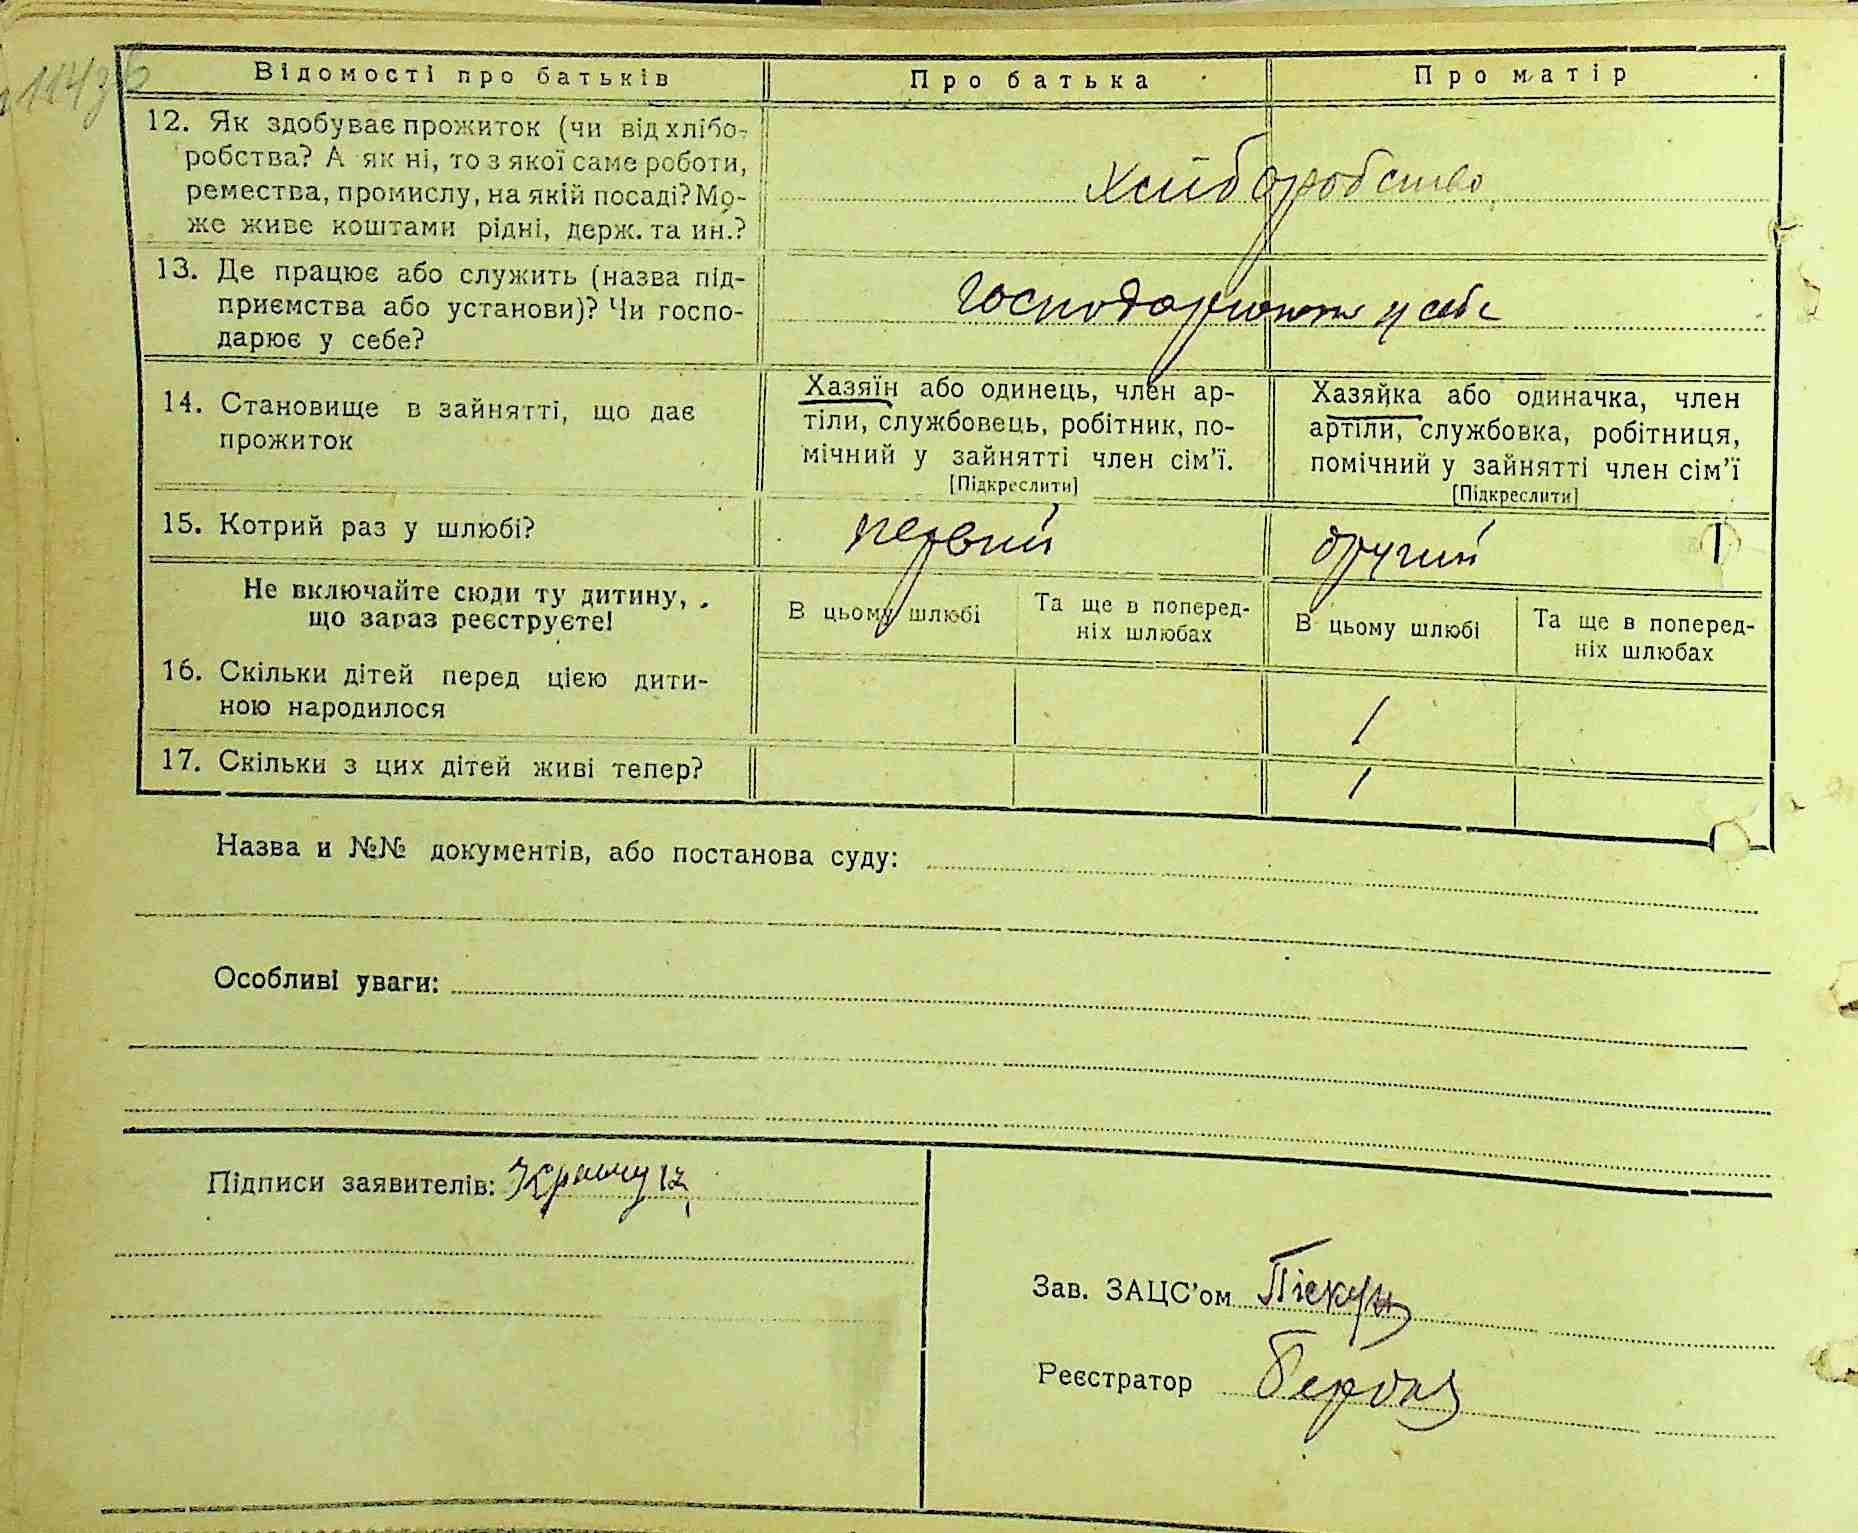 114зб
Відомості про батьків Про батька Про матір
12. Як здобуває прожиток (чи від хлібо-
робства? А як ні, то з якої саме роботи,
ремества, промислу, на якій посаді? Мо-
же живе коштами рідні, держ. та ин.?
хліборобство
13. Де працює або служить (назва під-
приємства або установи)? Чи госпо-
дарює у себе?
господарюють у себе
14. Становище в зайнятті, що дає
прожиток
Хазяїн або одинець, член ар-
тіли, службовець, робітник, по-
мічний у зайнятті член сім'ї.
[Підкреслити]
Хазяйка або одиначка, член
артіли, службовка, робітниця,
помічний у зайнятті член сім'ї
[Підкреслити]
15. Котрий раз у шлюбі? первий другий 1
Не включайте сюди ту дитину,
що зараз реєструєте!
В цьому шлюбі
Та ще в поперед-
ніх шлюбах
В цьому шлюбі
Та ще в поперед-
ніх шлюбах
16. Скільки дітей перед цією дити-
ною народилося
1
17. Скільки з цих дітей живі тепер? 1
Назва и №№ документів, або постанова суду:
Особливі уваги:
Підписи заявителів:
Зав. ЗАЦС'ом Піскун
Реєстратор